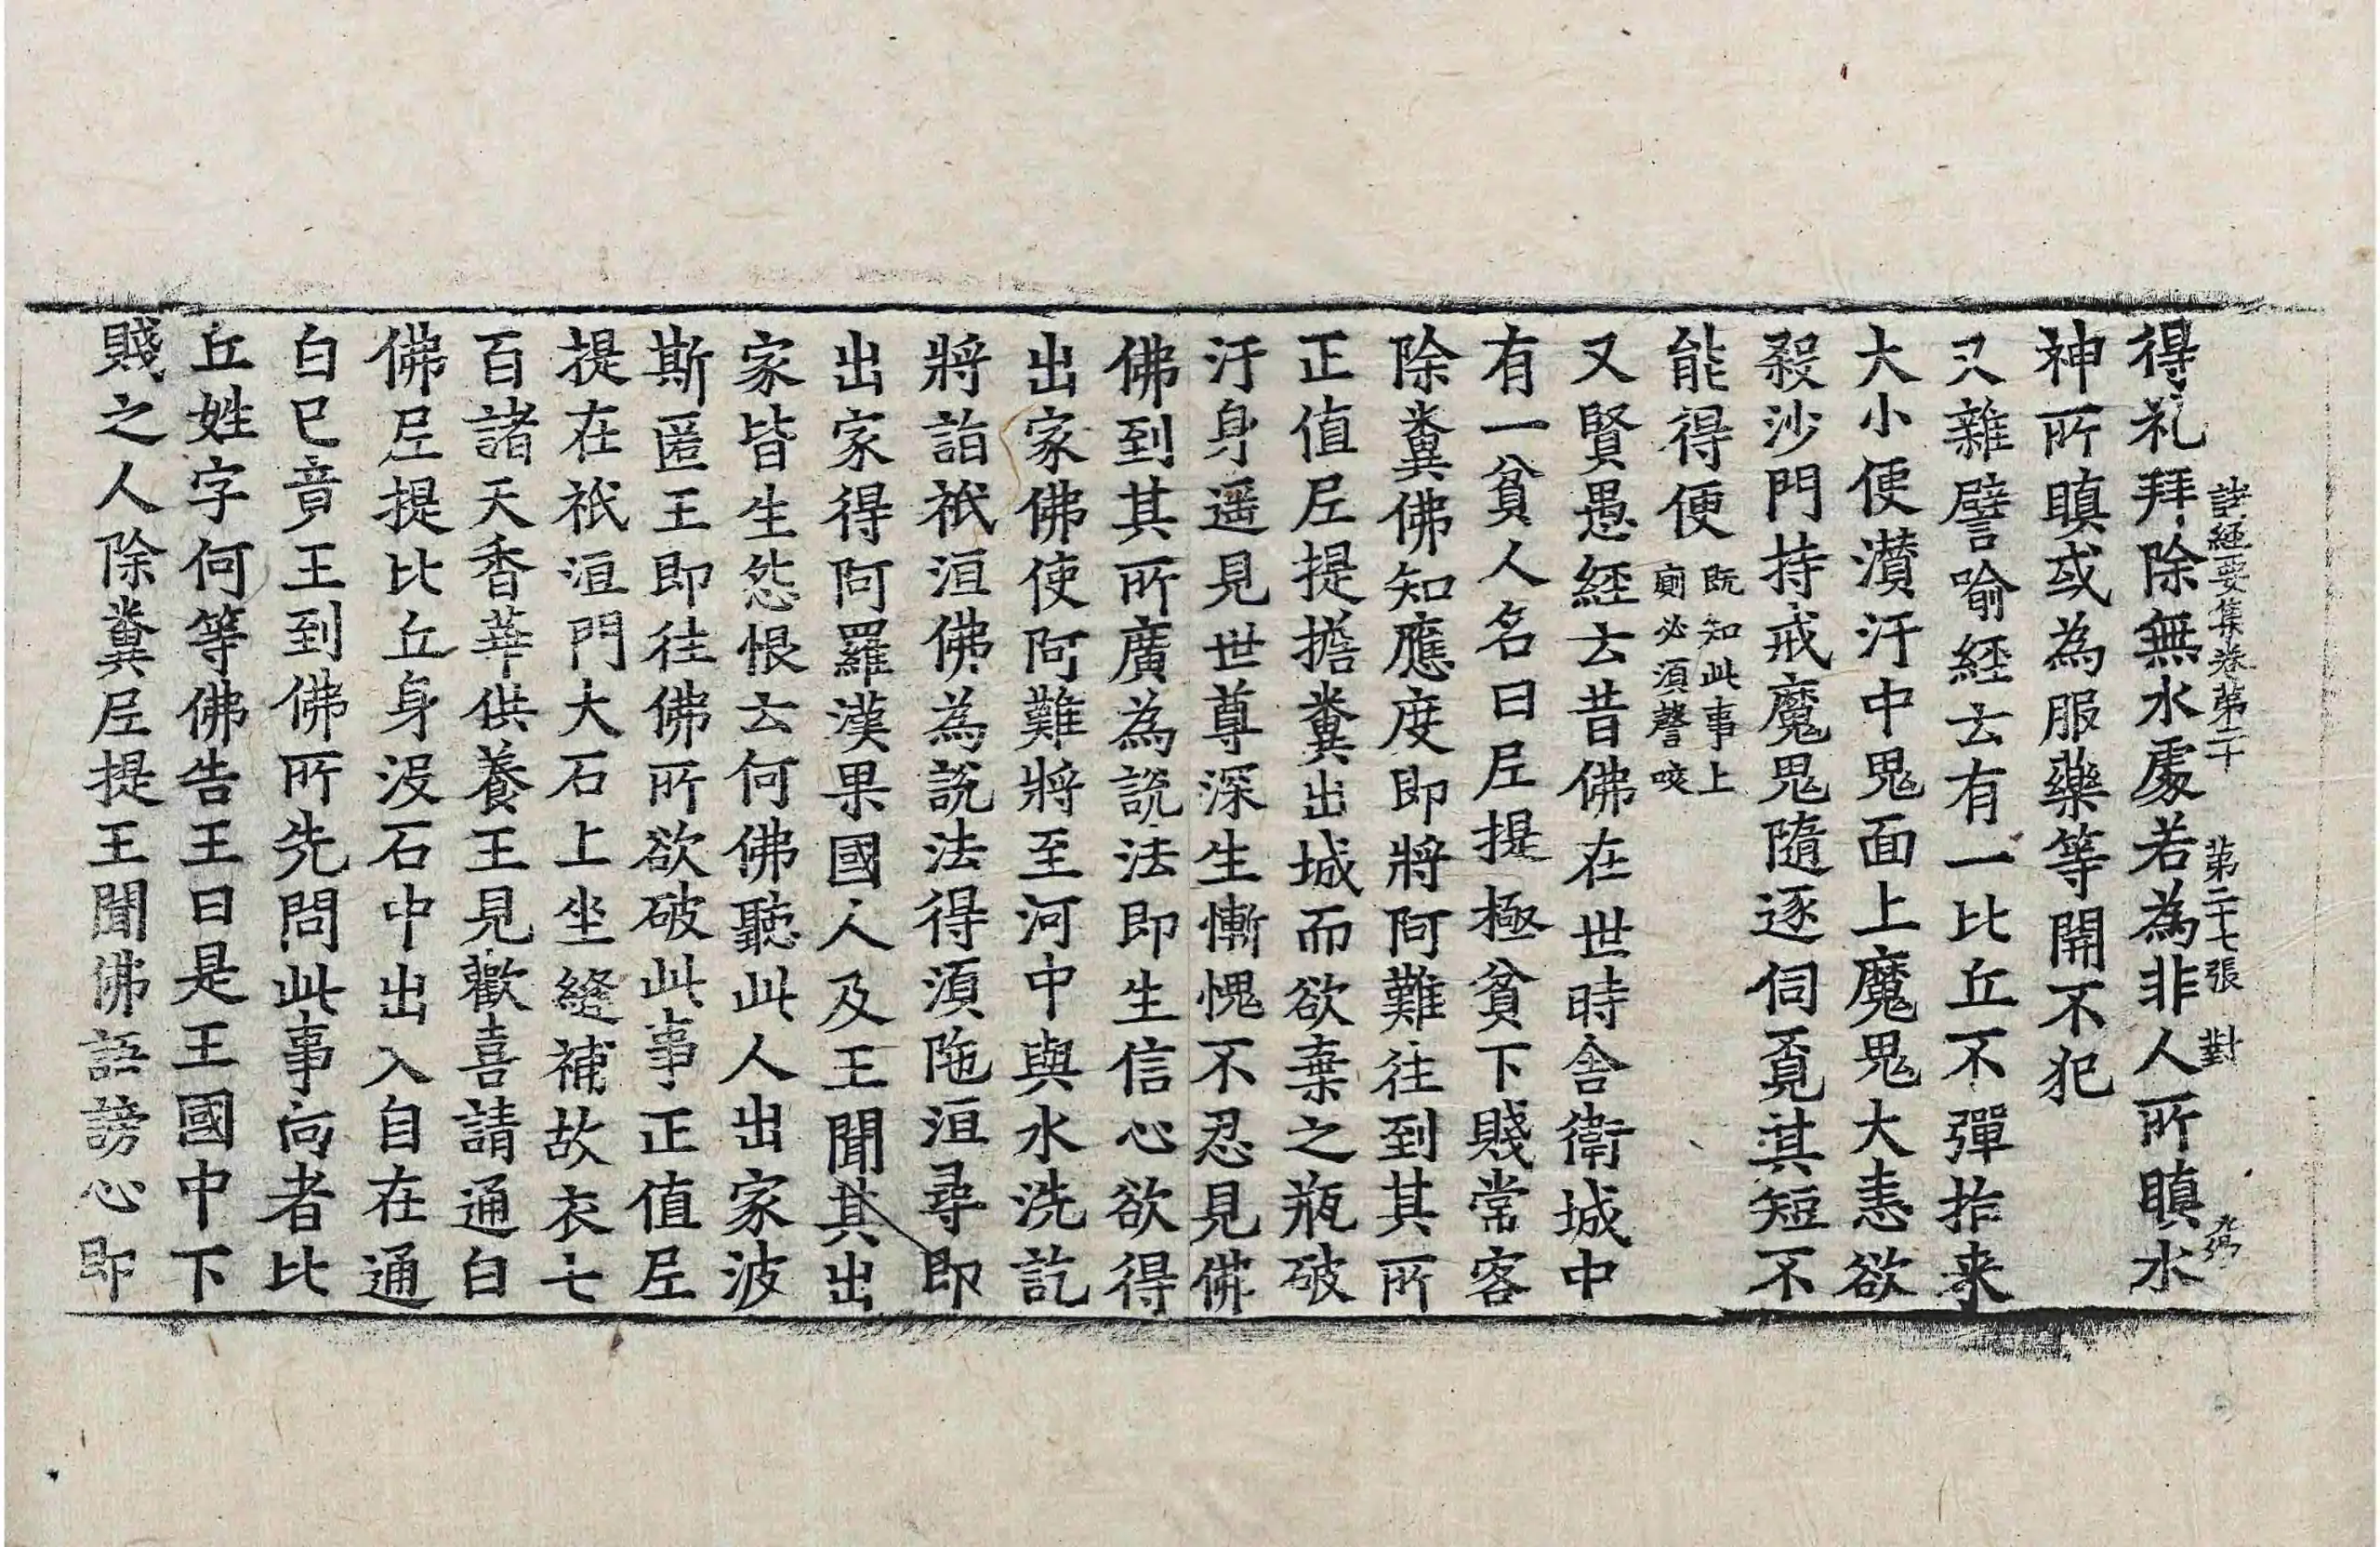 諸経要集卷第二十　第二十七張　對
得礼拜除無水處若為非人所瞋水
神所瞋或為服藥等開不犯
又雜譬喻経云有一比丘不彈指来
大小便濆汙中鬼面上魔鬼大恚欲
殺沙門持戒魔鬼隨逐伺覓其短不
能得便既知此事上廁必須謦咳
又賢愚経云昔佛在世時舍衛城中
有一貧人名曰𡰱提極貧下賤常客
除糞佛知應度即將阿難往到其所
正值𡰱提擔糞出城而欲棄之瓶破
汙身遥見世尊深生慚愧不忍見佛
佛到其所廣為說法即生信心欲得
出家佛使阿難將至河中與水洗訖
將詣祇洹佛為說法得湏陁洹尋即
出家得阿羅漢果國人及王聞其出
家皆生怨恨云何佛聽此人出家波
斯匿王即往佛所欲破此事正值𡰱
提在祇洹門大石上坐縫補故衣七
百諸天香華供養王見歡喜請通白
佛𡰱提比丘身沒石中出入自在通
白已竟王到佛所先問此事向者比
丘姓字何等佛告王曰是王國中下
賤之人除糞𡰱提王聞佛語謗心即